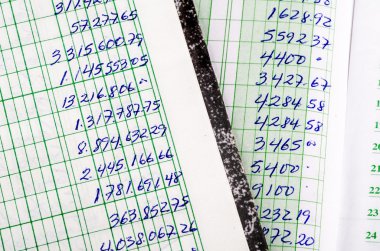 57.277.65
3.315.600.79
1.145.553.05
13.216.806.00
1.317.787.75
8.894.632.29
2.445.166.66
1.781.691.48
363.852.75
4.038.067.26
1628.92
5592.37
4400.
3427.67
4284.58
4284.58
3465.00
5.400.
9100.
232.19
772.20
19
20
21
22
23
24